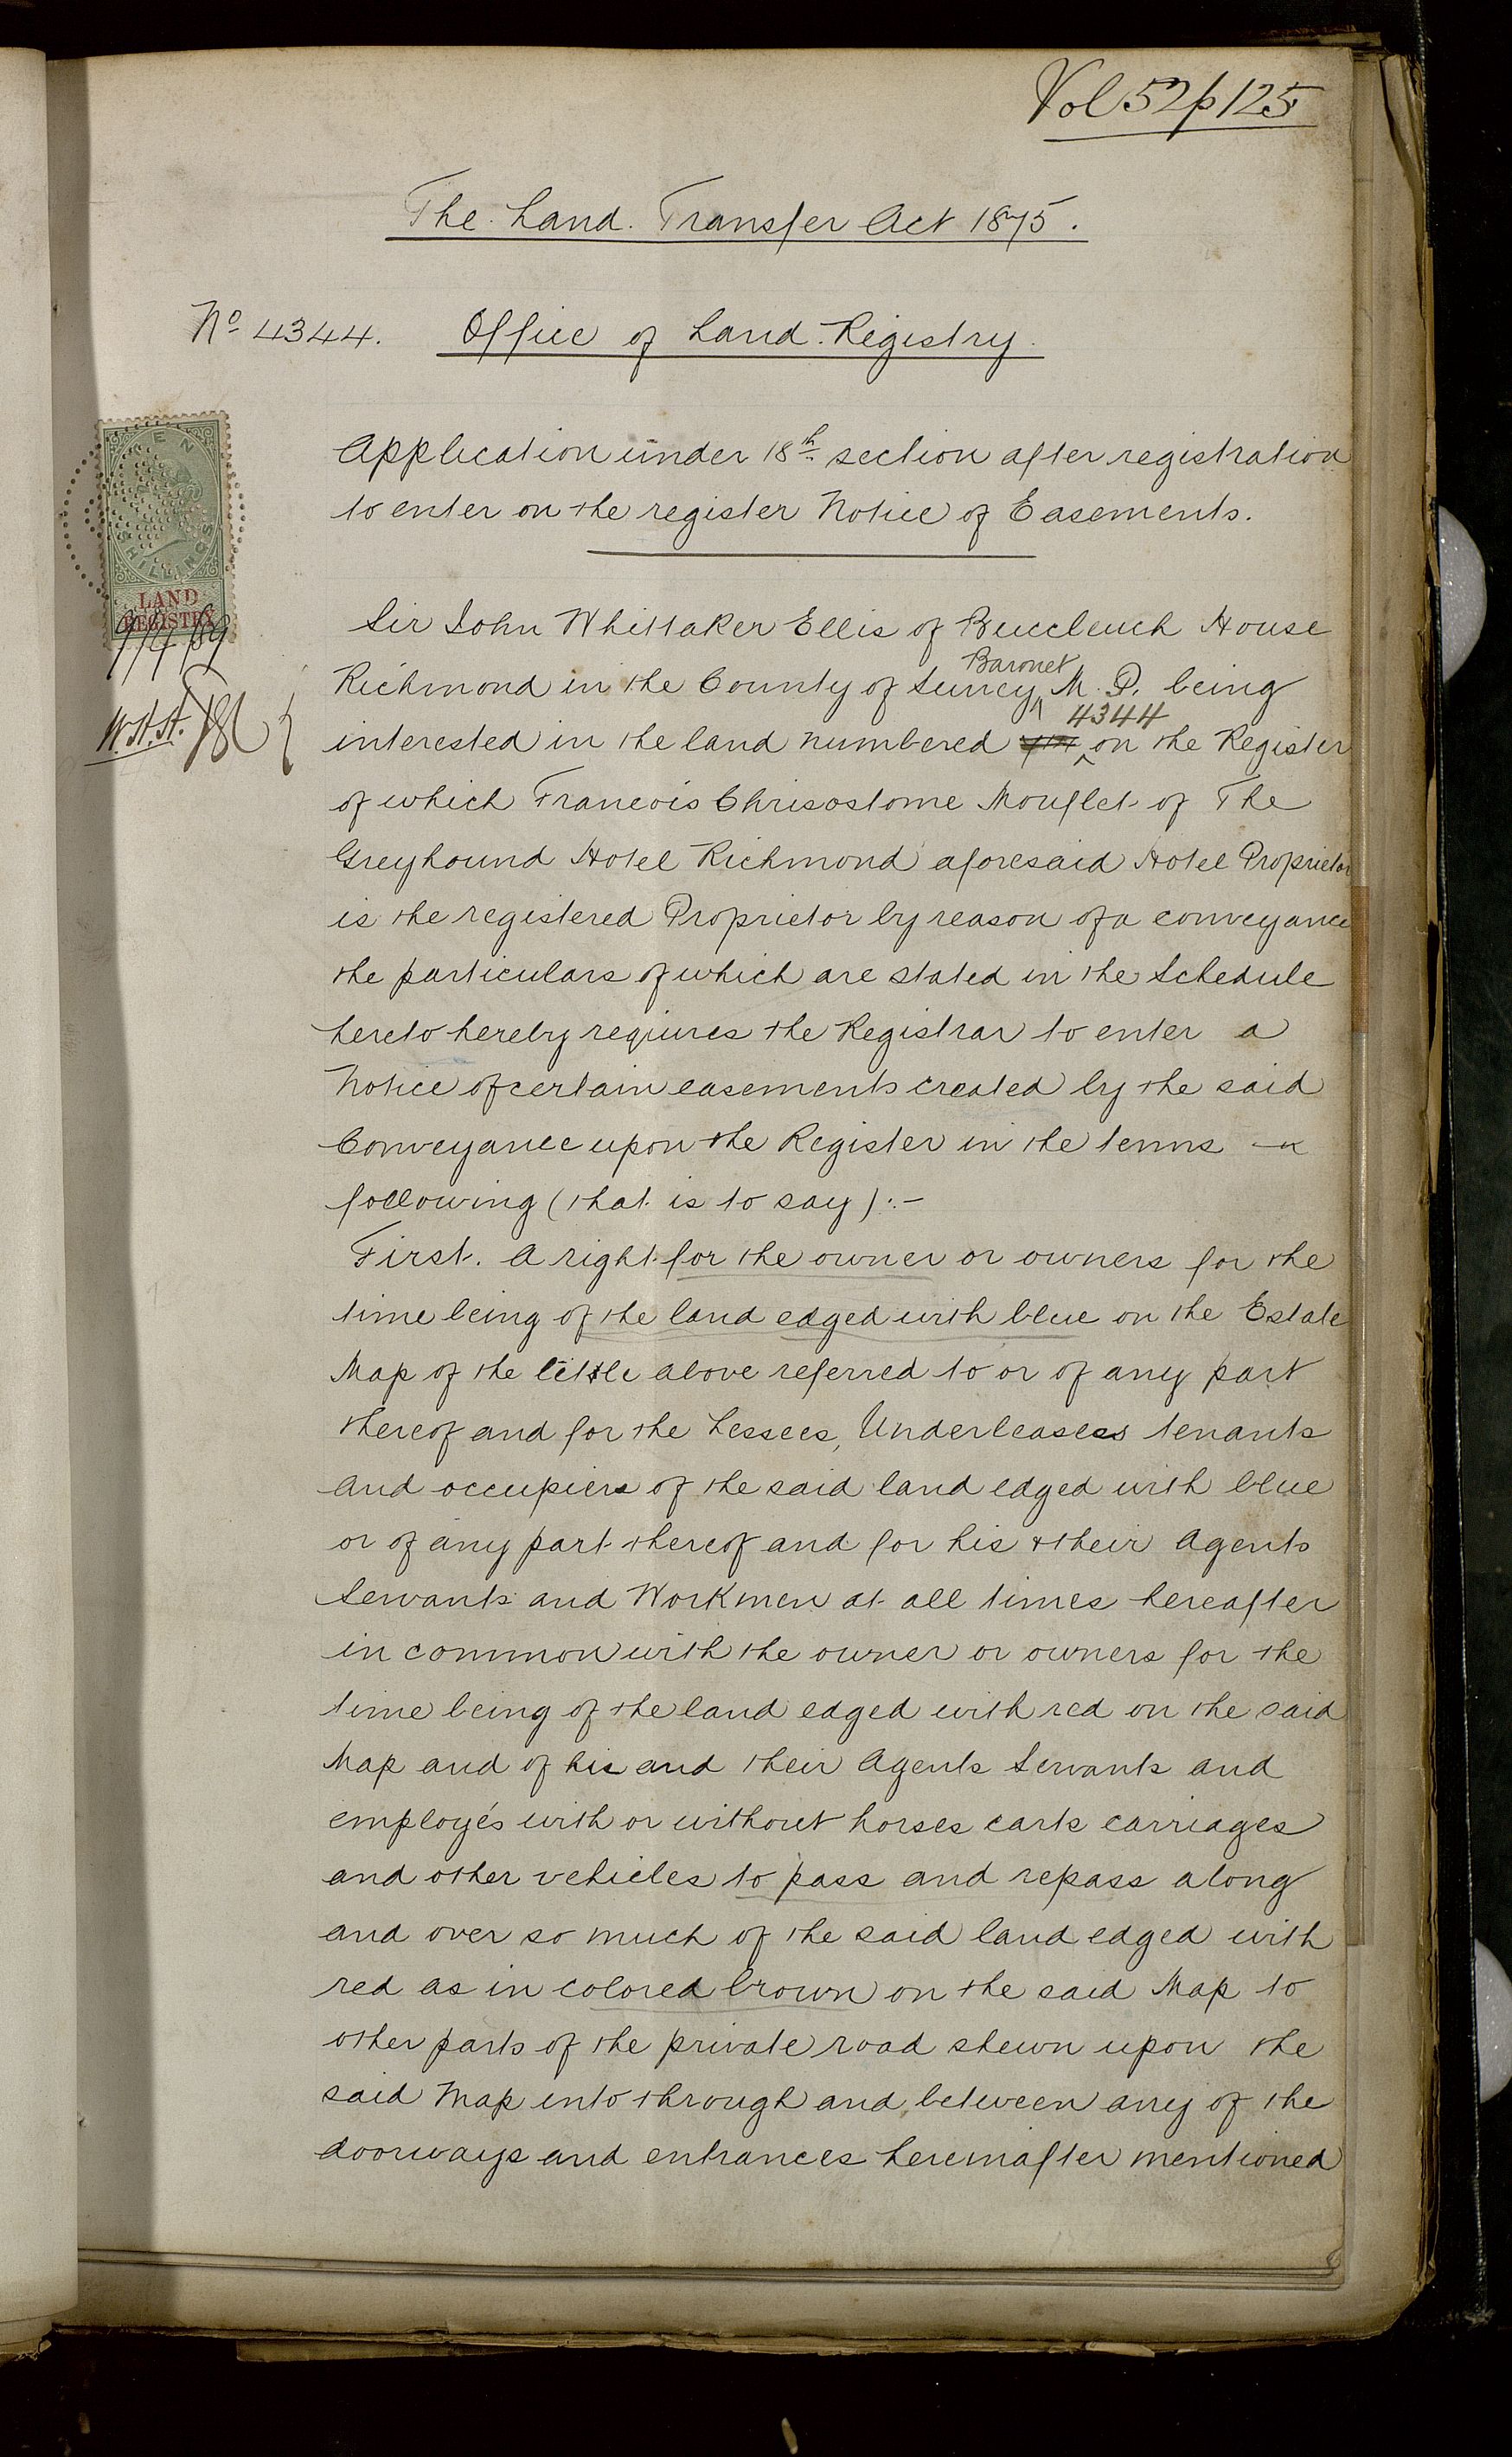 Vol 52 p 125
The Land Transfer Act 1875.
No 4344. Office of Land Registry.
TEN
SHILLINGS
LAND
REGISTRY
9/4/89
W.H.H.
Application under 18th section after registration
to enter on the register Notice of Easements.
Sir John Whittaker Ellis of Buccleuch House
Richmond in the County of Surrey Baronet M.P. being
interested in the land numbered 4344 on the Register
of which Francois Chrisostome Mouflet of The
Greyhound Hotel Richmond aforesaid Hotel Proprietor
is the registered Proprietor by reason of a conveyance
the particulars of which are stated in the Schedule
hereto hereby requires the Registrar to enter a
Notice of certain easements created by the said
Conveyance upon the Register in the terms
following (that is to say):-
First. A right for the owner or owners for the
time being of the land edged with blue on the Estate
Map of the title above referred to or of any part
thereof and for the Lessees, Underleasees tenants
and occupiers of the said land edged with blue
or of any part thereof and for his & their Agents
Servants and Workmen at all times hereafter
in common with the owner or owners for the
time being of the land edged with red on the said
Map and of his and their Agents Servants and
employés with or without horses carts carriages
and other vehicles to pass and repass along
and over so much of the said land edged with
red as in colored brown on the said Map to
other parts of the private road shewn upon the
said Map into through and between any of the
doorways and entrances hereinafter mentioned